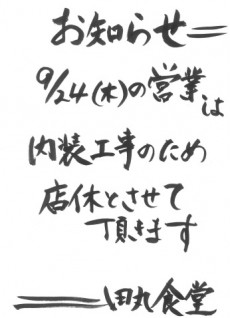 お知らせ
9/24(木)の営業は
内装工事のため
店休とさせて
頂きます
田丸食堂